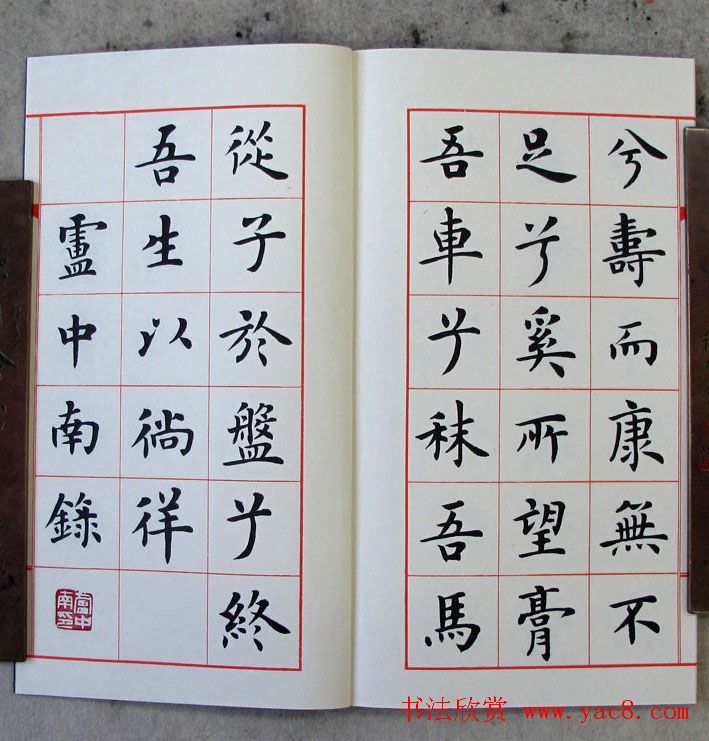 兮壽而康無不
足兮奚所望膏
吾車兮秣吾馬
從子於盤兮終
吾生以徜徉
盧中南錄
盧中南印
书法欣赏 www.yac8.com